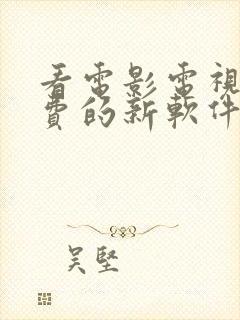 看電影電視
費的新軟件
吴堅